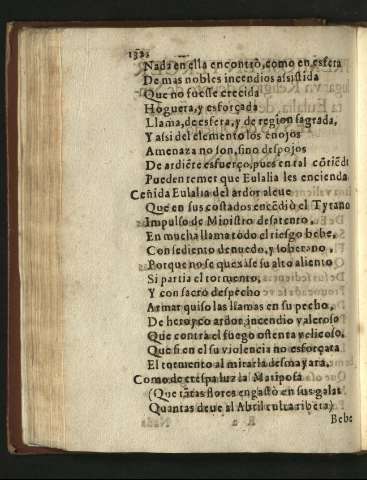 132
Nada en ella encontrò, como en esfera
De mas nobles incendios assistida
Que no fuesse crecida
Hoguera, y esforçada
Llama, de esfera, y de region sagrada,
Y assi del elemento los enojos
Amenaza no son, sino despojos
De ardiẽte esfuerço, pues en tal cõtiẽda
Pueden temer que Eulalia les encienda
Ceñida Eulalia del ardor aleue
Que en sus costados encẽdiò el Tyrano
Impulso de Ministro desatento,
En mucha llama todo el riesgo bebe,
Con sediento denuedo, y soberano,
Porque no se quexàse su alto aliento
Si partia el tormento,
Y con sacro despecho
Armar quiso las llamas en su pecho,
De heroyco ardor, incendio valeroso
Que contra el fuego ostenta velicoso,
Que si en su violencia no esforçara
El tormento al mirarla desmayara,
Como de crespa luz la Mariposa
(Que tãtas flores engastò en sus galas
Quantas deue al Abril culta ribera)
Bebe